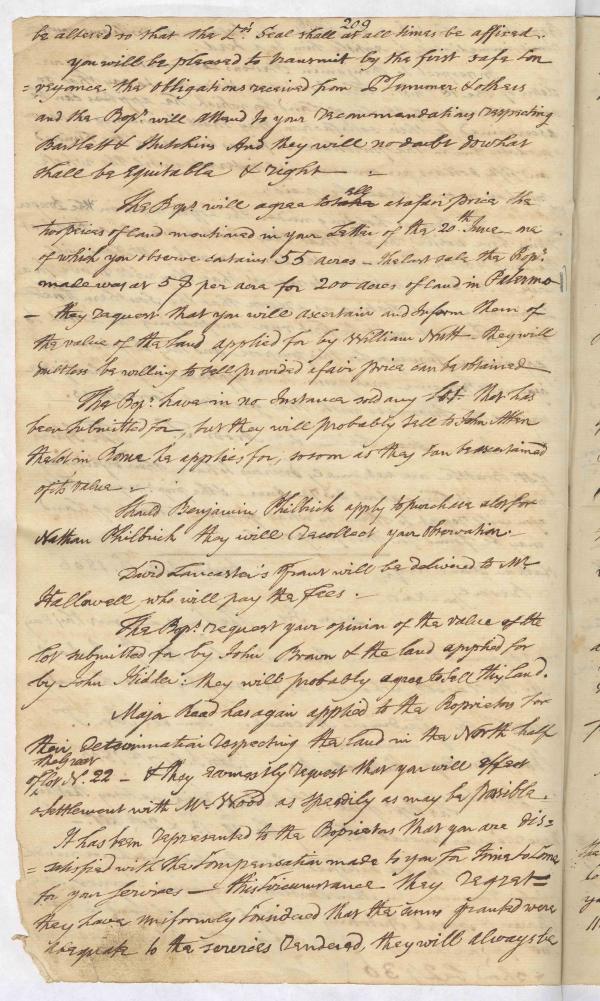 209
be altered so that the Lts Seal shall at all times be affixed.
You will be pleased to transmit by the first safe Con
=veyance the Obligations received from Plummer & others
and the Proprs. will attend to your recommendations respecting
Bartlett & Hutchins And they will no doubt do what
shall be Equitable & right
The Proprs. will agree to sell at a fair price the
two pieces of land mentioned in your Letter of the 20th June one
of which you observe contains 55 acres – the last sale the Proprs.
made was at 5$ per acre for 200 acres of land in Palermo
– they request that you will ascertain and Inform them of
the value of the land applied for by William Nutt – they will
doubtless be willing to sell provided a fair price can be obtained
The Proprs. have in no Instance sold any Lot that has
been submitted for, but they will probably sell to John Allen
the lot in Rome he applies for, so soon as they can be ascertained
of its value.
Should Benjamin Philbrick apply to purchase a lot for
Nathan Philbrick they will recollect your observation.
David Lancaster's Grant will be delivered to Mr
Hallowell, who will pay the Fees.
The Proprs. request your opinion of the value of the
lot submitted for by John Brown & the land applied for
by John Kidder: they will probably agree to sell this land.
Major Read has again applied to the Proprietors for
their determination respecting the land in the North half
of the Great Lot N. 22 – & they earnestly request that you will effect
a Settlement with Mr Wood as speedily as may be possible.
It has been represented to the Proprietors that you are dis=
=satisfied with the Compensation made to you from time to time
for your Services – this Circumstance they regret =
they have uniformly Considered that the sums granted were
adequate to the services rendered, they will always be